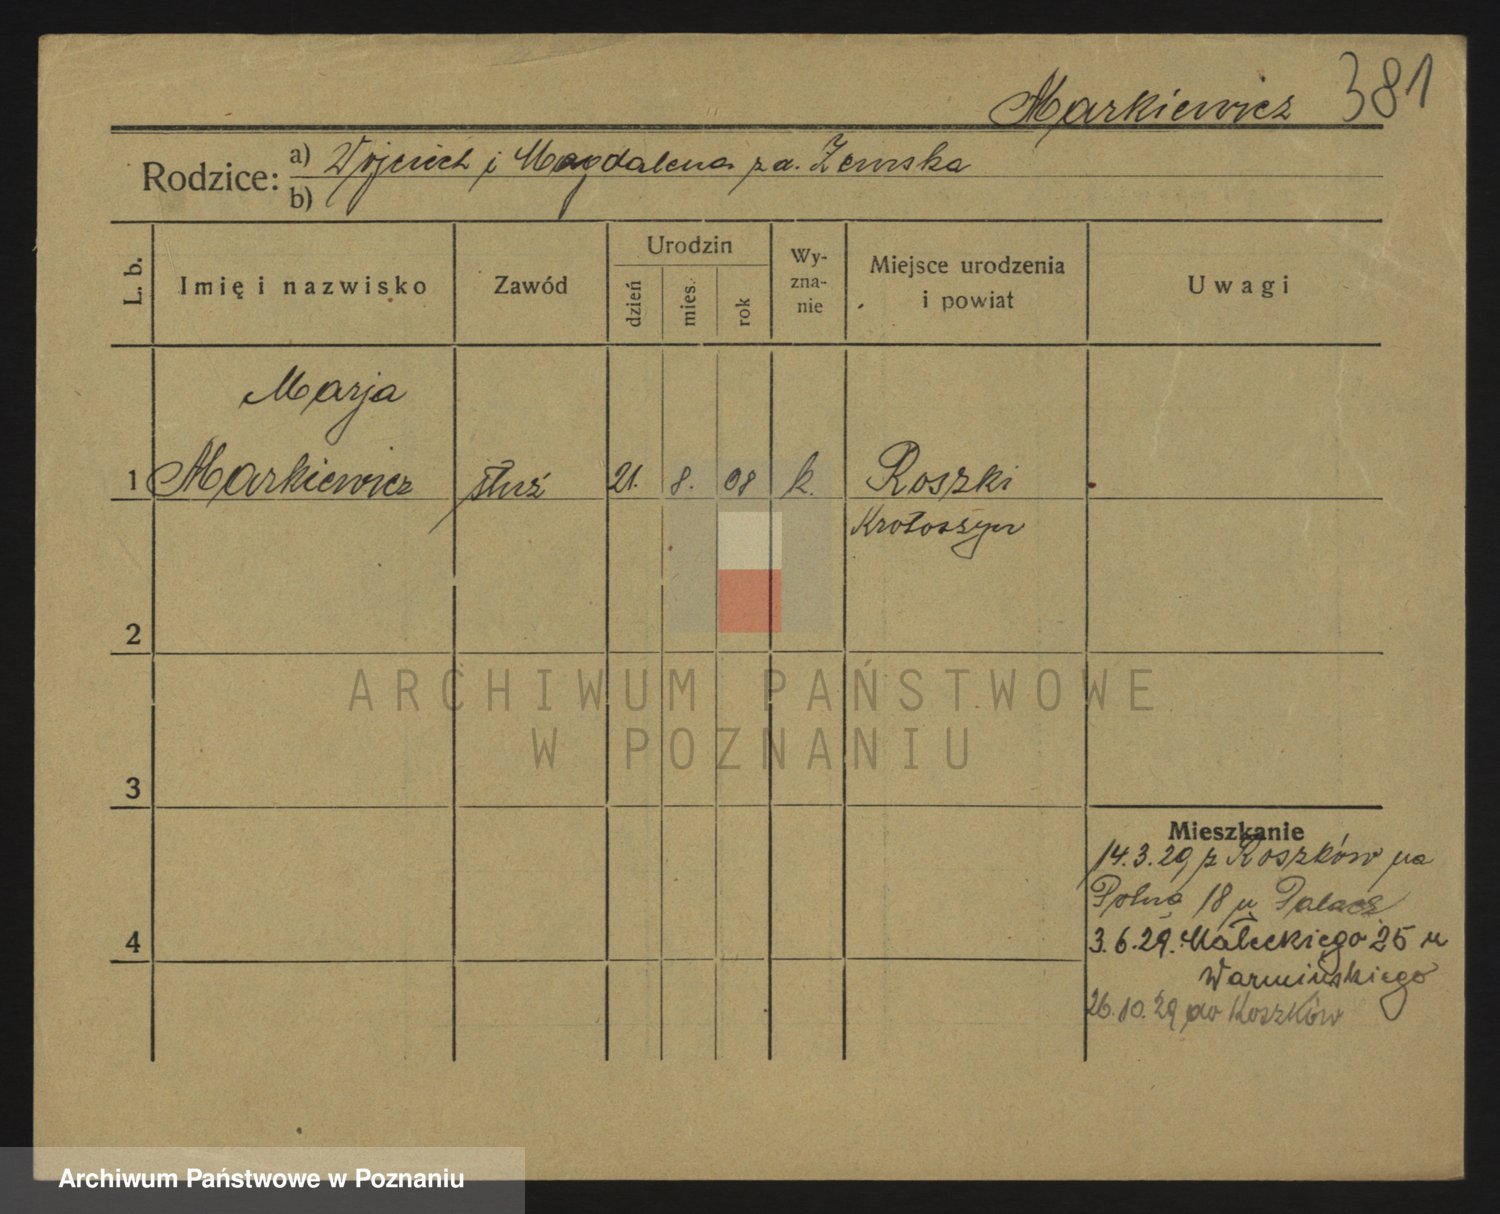 Markiewicz 381
Rodzice: a) Wojciech i Magdalena z d. Zemska
b)
L. b.
Imię i nazwisko
Zawód
Urodzin
dzień
mies.
rok
Wy-
zna-
nie
Miejsce urodzenia
i powiat
Uwagi
Marja
1 Markiewicz służ 21. 8. 08 k. Roszki
Krotoszyn
2
ARCHIWUM PAŃSTWOWE
W POZNANIU
3
Mieszkanie
14.3.29 z Roszków na
Polną 18 u Palacz
4
3.6.29. Małeckiego 25 u
Warmińskiego
26.10.29 do Roszków
Archiwum Państwowe w Poznaniu